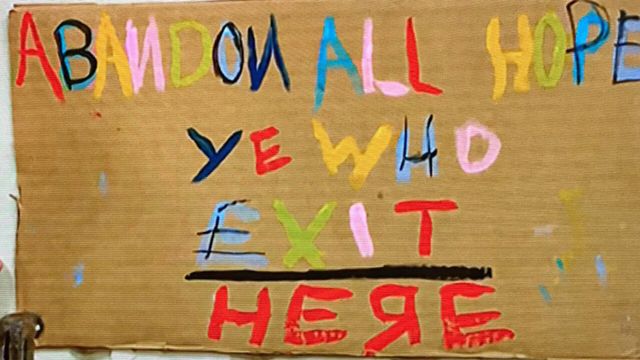 ABANDON ALL HOPE
YE WHO
EXIT
HERE